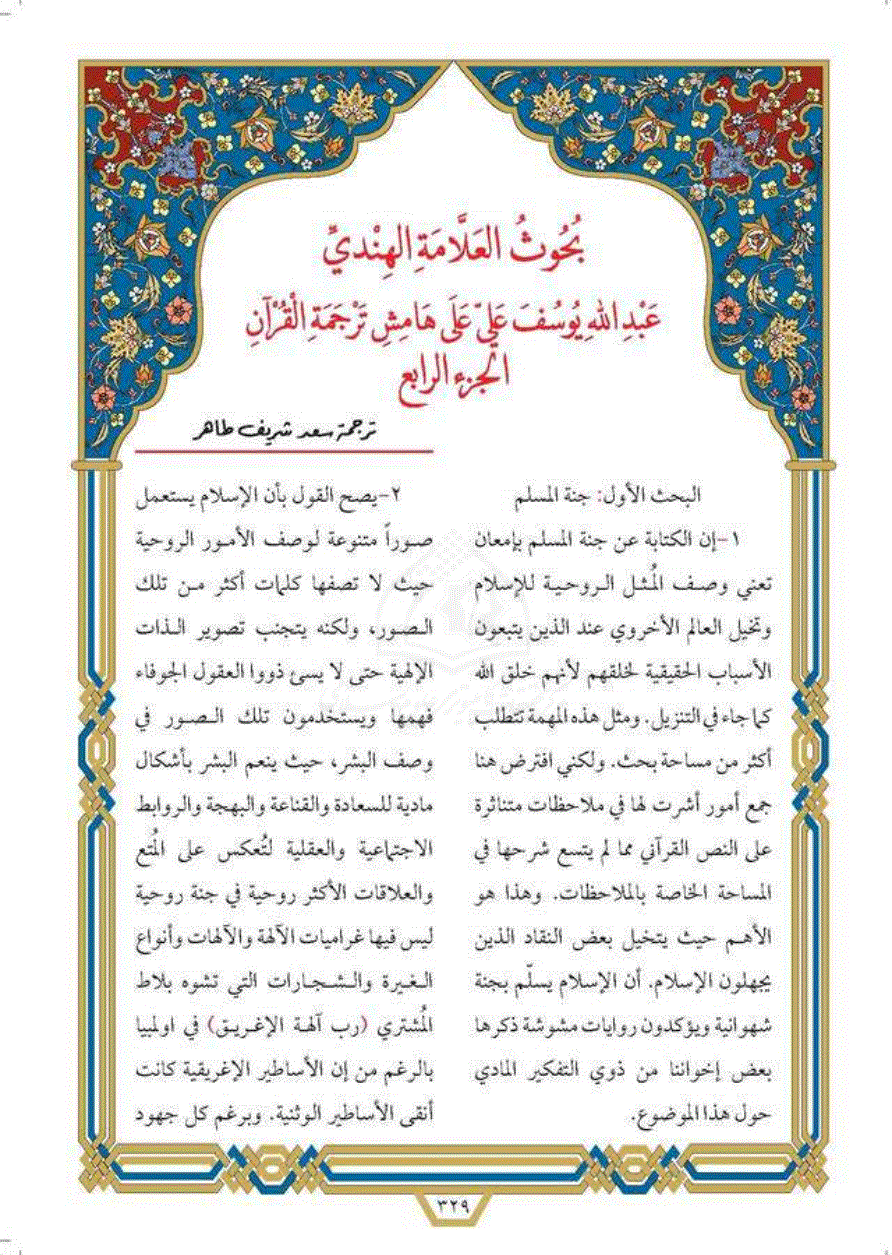 بُحُوثُ العَلَّامَةِ الهِنْديِّ
عَبْدِ اللهِ يُوسُفَ عَليّ عَلَى هَامِشِ تَرْجَمَةِ الْقُرْآنِ
الجزء الرابع
ترجمة سعد شريف طاهر
البحث الأول: جنة المسلم
١-إن الكتابة عن جنة المسلم بإمعان
تعني وصف المُثل الروحية للإسلام
وتخيل العالم الأخروي عند الذين يتبعون
الأسباب الحقيقية لخلقهم لأنهم خلق الله
كما جاء في التنزيل. ومثل هذه المهمة تتطلب
أكثر من مساحة بحث. ولكني افترض هنا
جمع أمور أشرت لها في ملاحظات متناثرة
على النص القرآني مما لم يتسع شرحها في
المساحة الخاصة بالملاحظات. وهذا هو
الأهم حيث يتخيل بعض النقاد الذين
يجهلون الإسلام. أن الإسلام يسلّم بجنة
شهوانية ويؤكدون روايات مشوشة ذكرها
بعض إخواننا من ذوي التفكير المادي
حول هذا الموضوع.
٢-يصح القول بأن الإسلام يستعمل
صوراً متنوعة لوصف الأمور الروحية
حيث لا تصفها كلمات أكثر من تلك
الصور، ولكنه يتجنب تصوير الذات
الإلهية حتى لا يسئ ذووا العقول الجوفاء
فهمها ويستخدمون تلك الصور في
وصف البشر، حيث ينعم البشر بأشكال
مادية للسعادة والقناعة والبهجة والروابط
الاجتماعية والعقلية لتُعكس على المُتع
والعلاقات الأكثر روحية في جنة روحية
ليس فيها غراميات الآلهة والآلهات وأنواع
الغيرة والشجارات التي تشوه بلاط
المُشتري (رب آلهة الإغريق) في اولمبيا
بالرغم من إن الأساطير الإغريقية كانت
أنقى الأساطير الوثنية. وبرغم كل جهود
٣٢٩